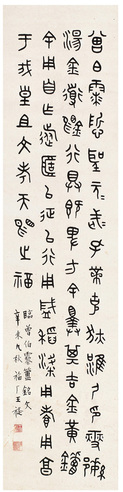 曾白霥悊聖元武孔黹克狄淮夷印燮繁
湯金道錫行具既卑方余擇其吉金黃鏞
余用自乍旅匡以征以行用盛稻粱用孝用亯
于我皇且文考天賜之福
臨曾伯霥簠銘文
辛未九秋福厂王禔